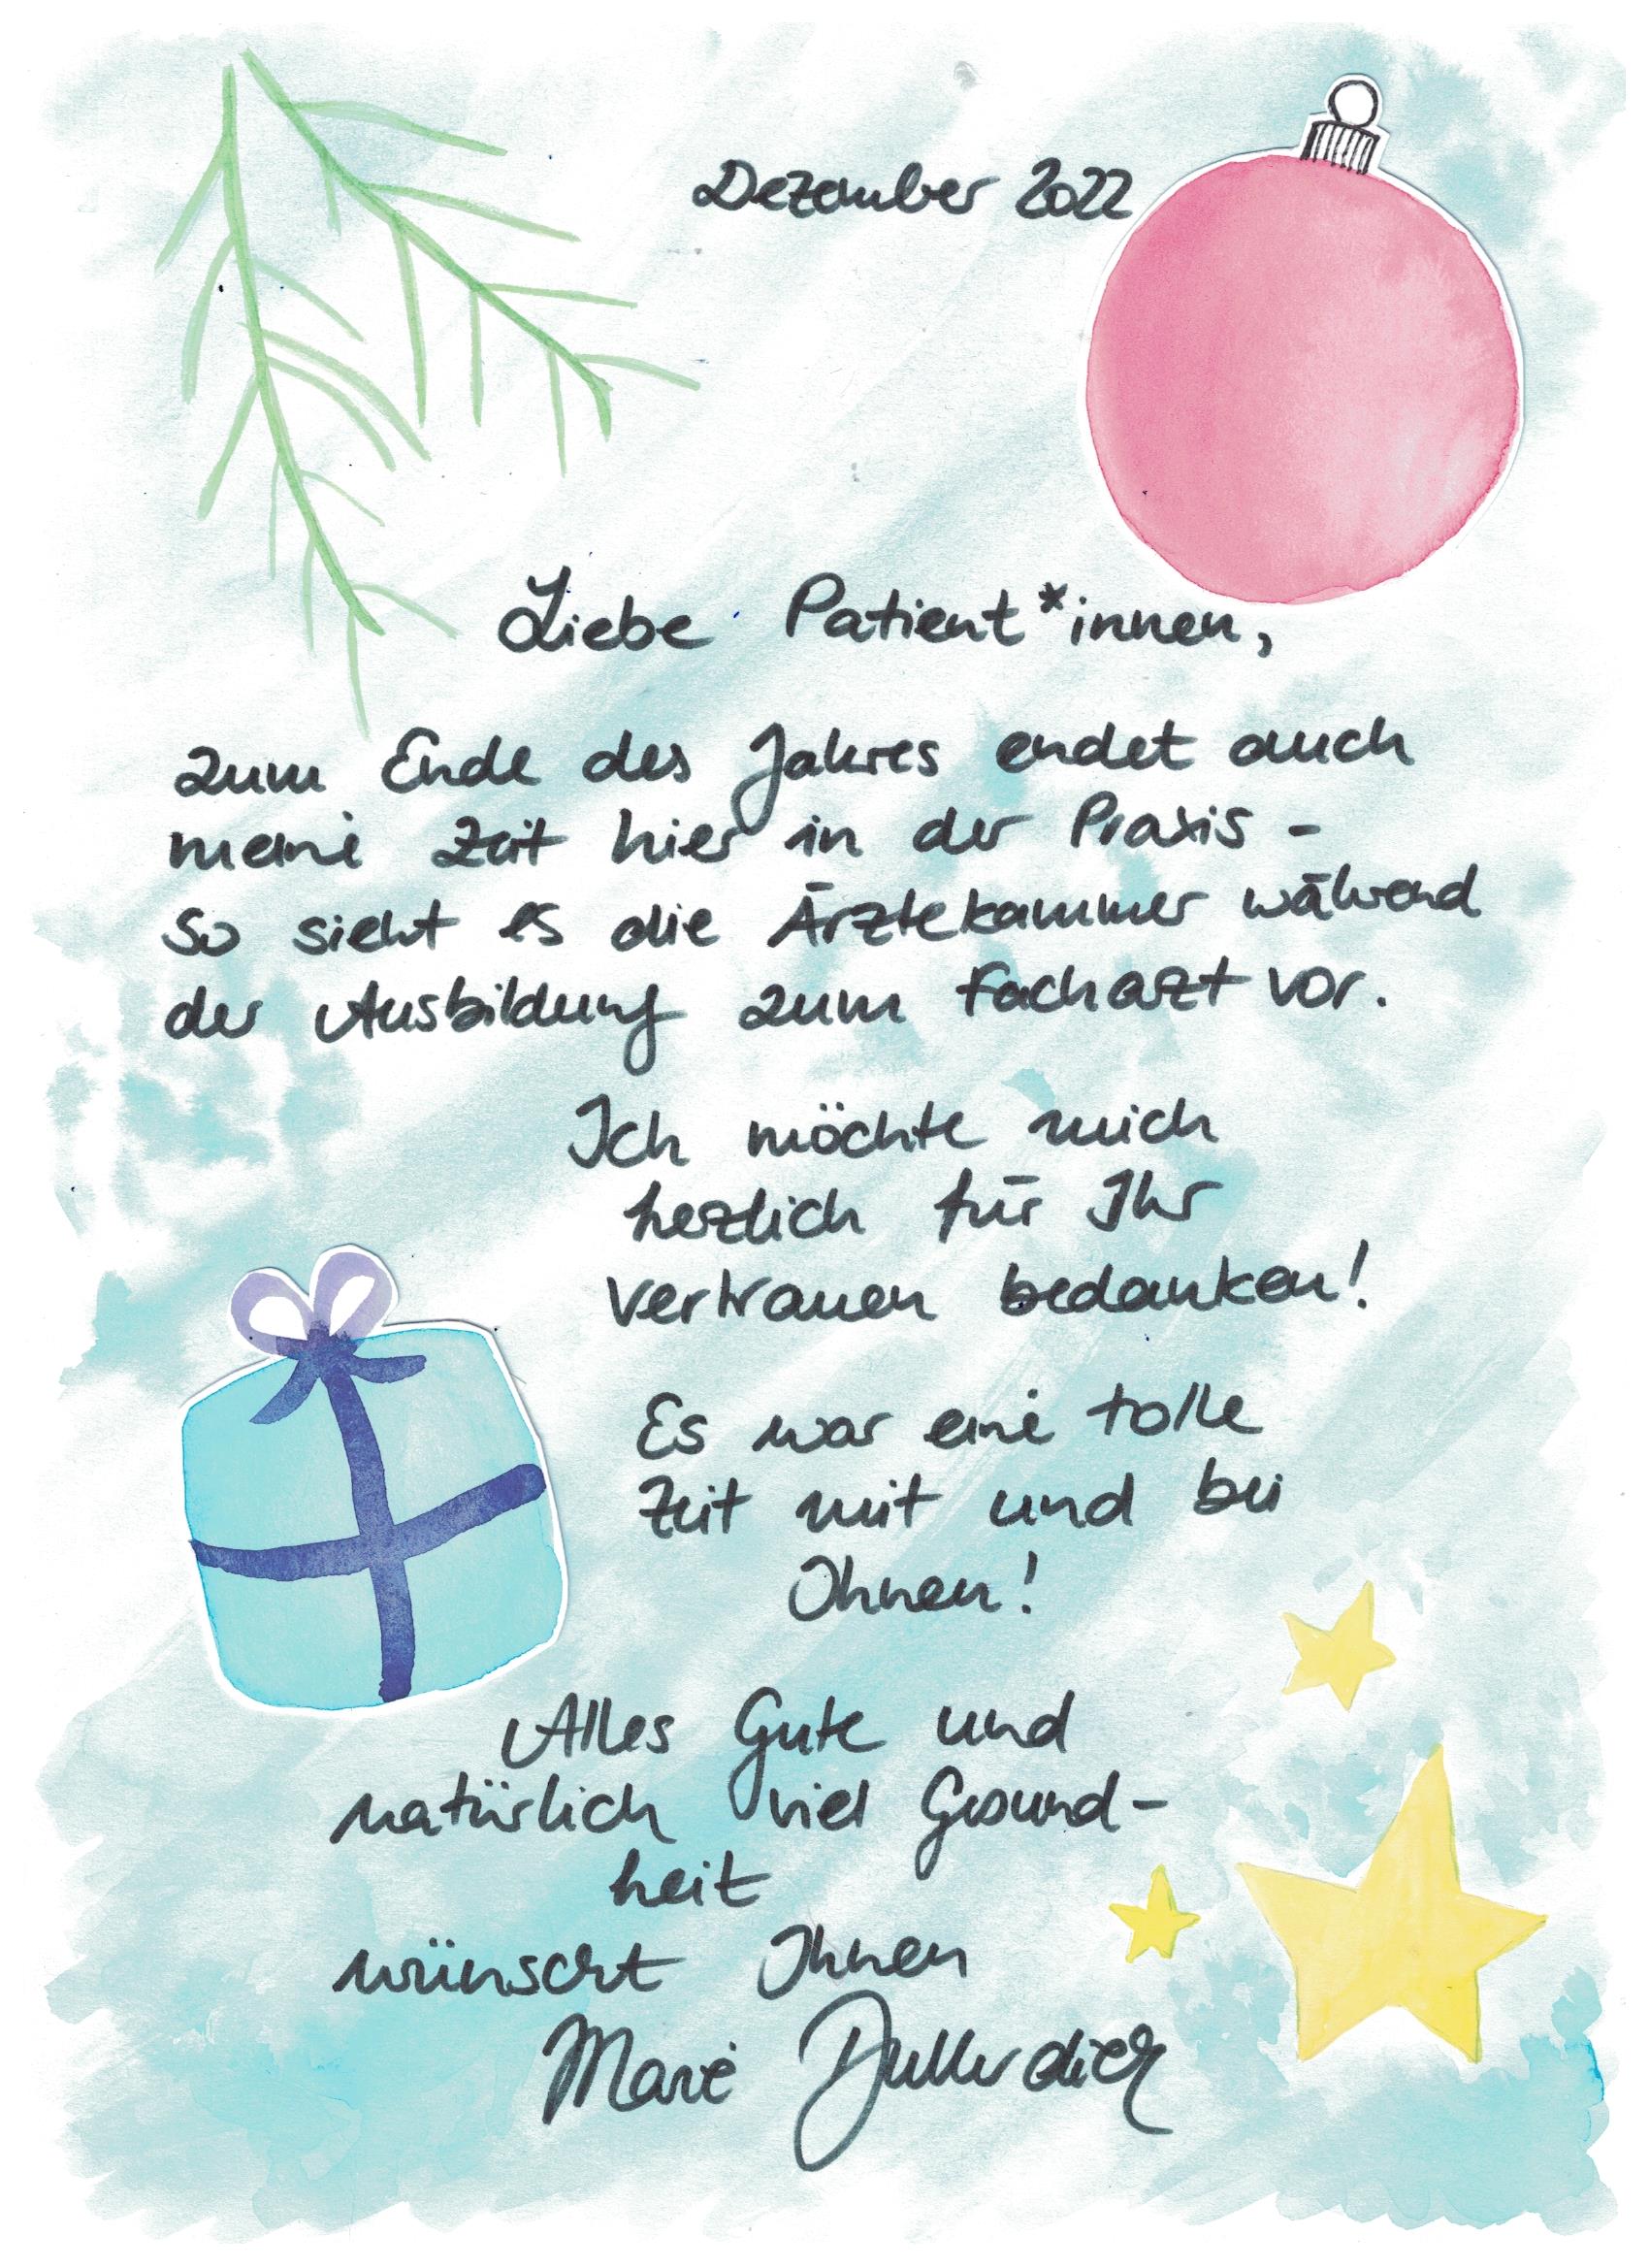 Dezember 2022
Liebe Patient*innen,
zum Ende des Jahres endet auch
meine Zeit hier in der Praxis -
So sieht es die Ärztekammer während
der Ausbildung zum Facharzt vor.
Ich möchte mich
herzlich für Ihr
Vertrauen bedanken!
Es war eine tolle
Zeit mit und bei
Ihnen!
Alles Gute und
natürlich viel Gesund-
heit
wünscht Ihnen
Marie Dullerdick